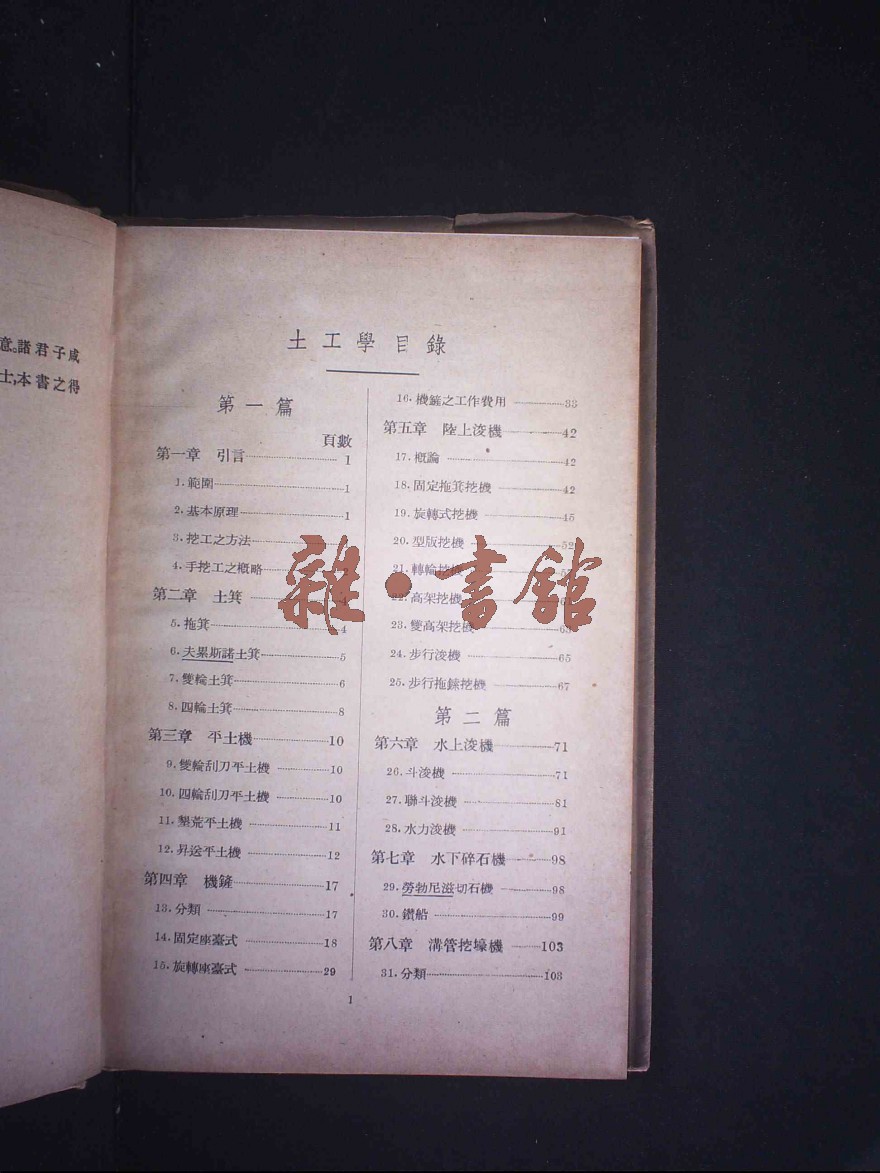 意。諸君子咸
士,本書之得
土工學目錄
第一篇
頁數
第一章 引言 1
1. 範圍 1
2. 基本原理 1
3. 挖工之方法
4. 手挖工之概略
第二章 土箕
5. 拖箕 4
6. 夫累斯諾土箕 5
7. 雙輪土箕 6
8. 四輪土箕 8
第三章 平土機 10
9. 雙輪刮刀平土機 10
10. 四輪刮刀平土機 10
11. 墾荒平土機 11
12. 昇送平土機 12
第四章 機鏟 17
13. 分類 17
14. 固定座臺式 18
15. 旋轉座臺式 29
16. 機鏟之工作費用 38
第五章 陸上浚機 42
17. 概論 42
18. 固定拖箕挖機 42
19. 旋轉式挖機 45
20. 型版挖機 52
21. 轉輪挖機
22. 高架挖機
23. 雙高架挖機 63
24. 步行浚機 65
25. 步行拖鍊挖機 67
第二篇
第六章 水上浚機 71
26. 斗浚機 71
27. 聯斗浚機 81
28. 水力浚機 91
第七章 水下碎石機 98
29. 勞勃尼滋切石機 98
30. 鑽船 99
第八章 溝管挖壕機 103
31. 分類 103
1
雜·書館